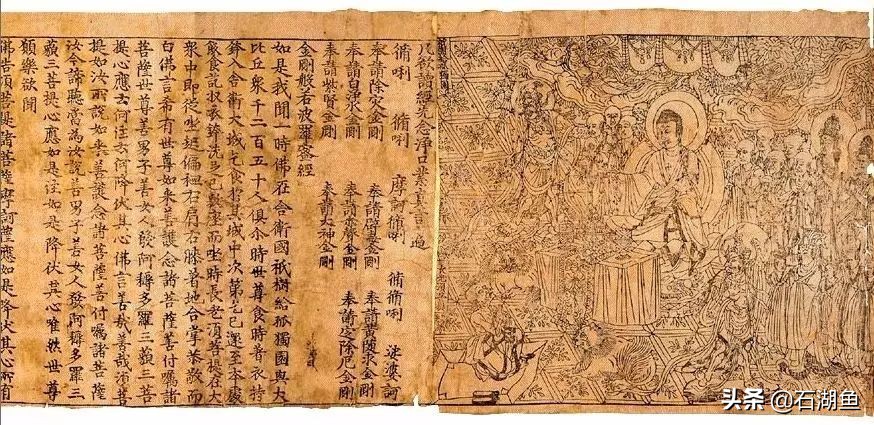 凡欲讀經先念淨口業真言一遍
脩唎 脩唎 摩訶脩唎 脩脩唎 娑婆訶
奉請除灾金剛 奉請辟毒金剛 奉請黃隨求金剛
奉請白淨水金剛 奉請赤聲金剛 奉請定除厄金剛
奉請紫賢金剛 奉請大神金剛
金剛般若波羅蜜經
如是我聞一時佛在舍衛國祇樹給孤獨園與大
比丘衆千二百五十人俱尒時世尊食時著衣持
鉢入舍衛大城乞食於其城中次第乞已還至本處
飯食訖收衣鉢洗足已敷座而坐時長老須菩提在大
衆中即從坐起偏袒右肩右膝著地合掌恭敬而
白佛言希有世尊如來善護念諸菩薩善付囑諸
菩薩世尊善男子善女人發阿耨多羅三藐三菩
提心應云何住云何降伏其心佛言善哉善哉須菩
提如汝所說如來善護念諸菩薩善付囑諸菩薩
汝今諦聽當為汝說善男子善女人發阿耨多羅三
藐三菩提心應如是住如是降伏其心唯然世尊
願樂欲聞
佛告須菩提諸菩薩摩訶薩應如是降伏其心所有
头条 @石湖鱼